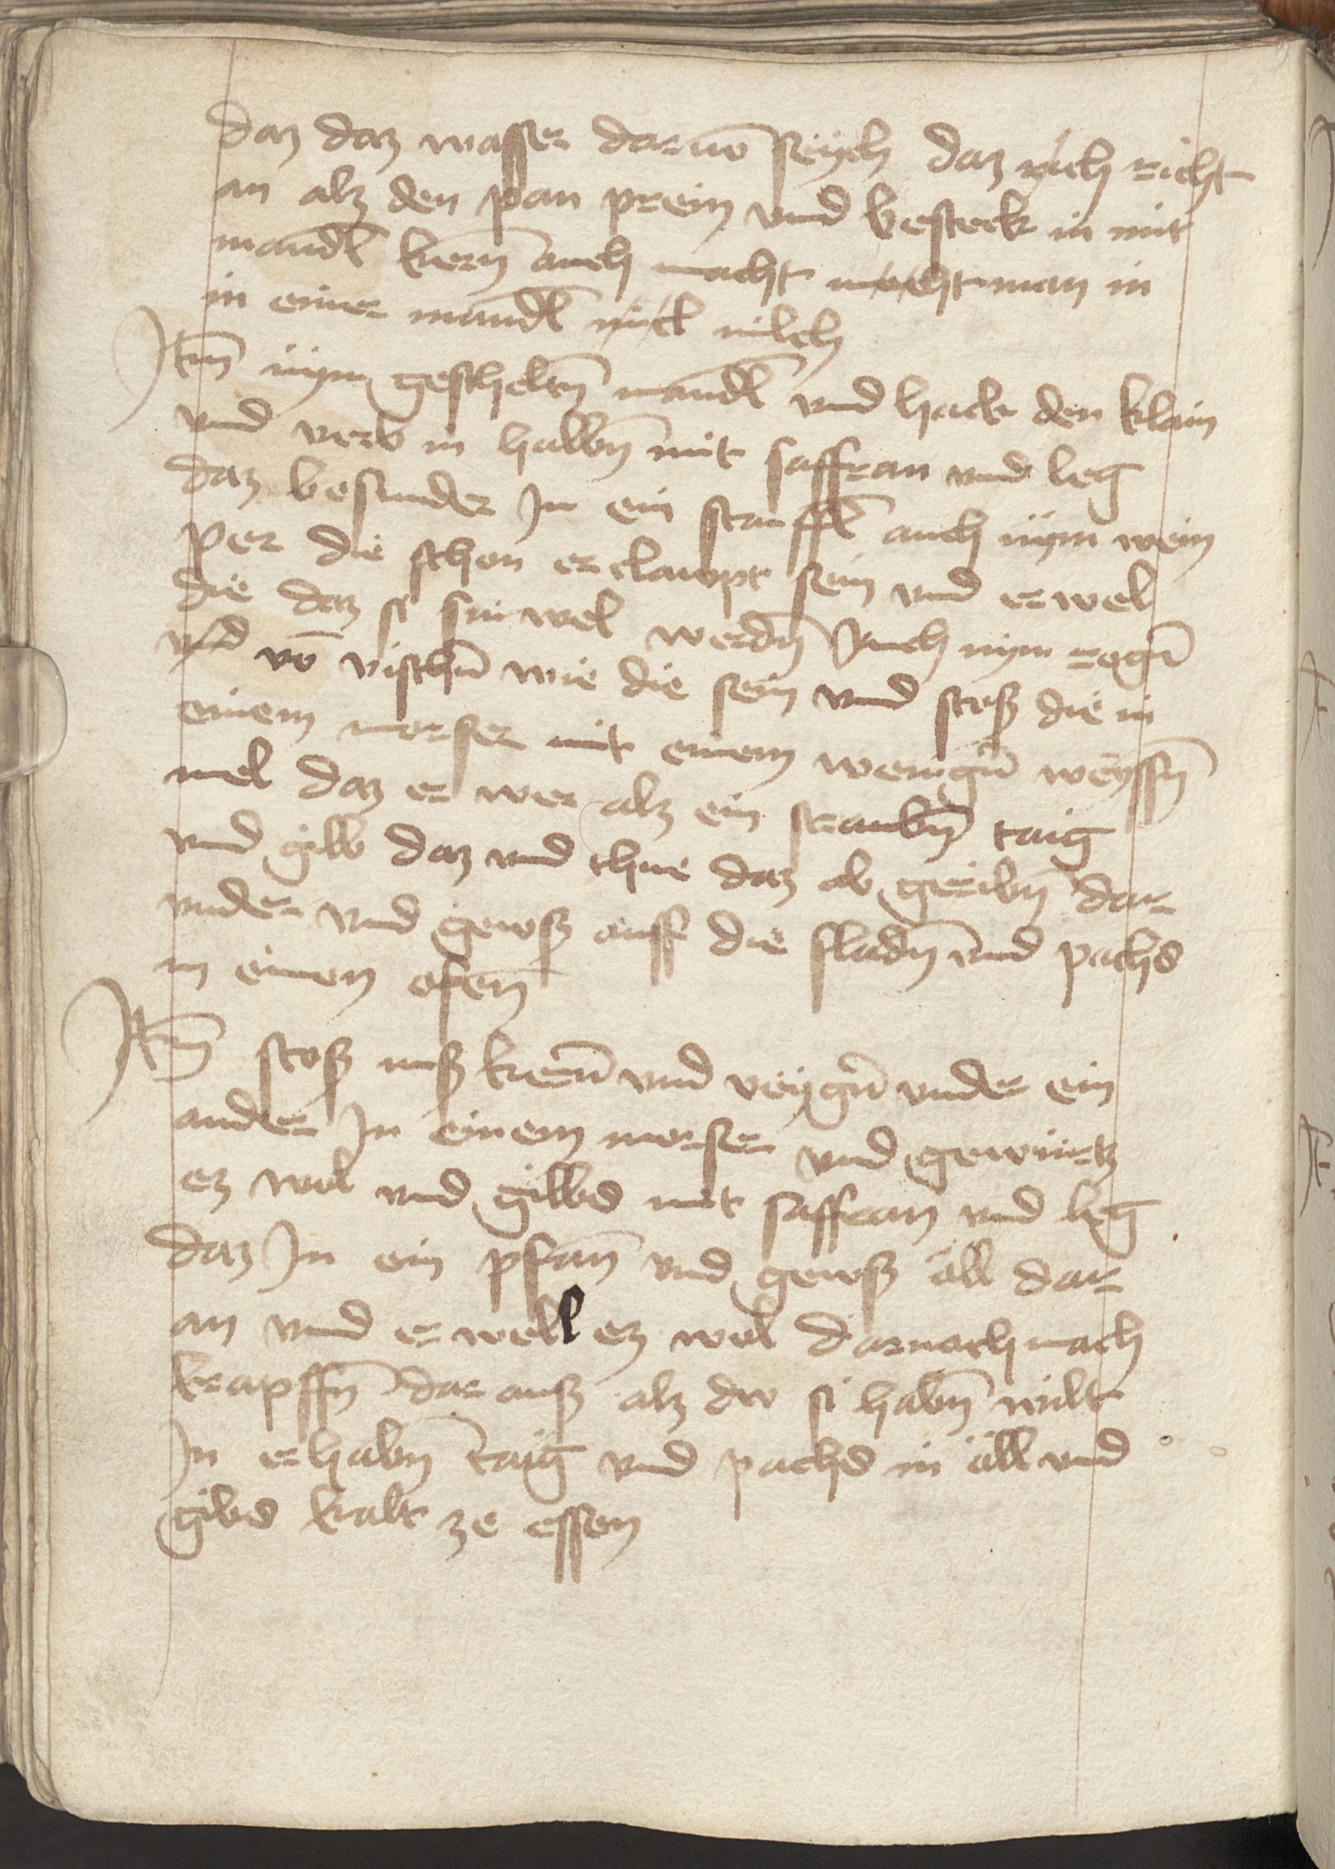 daz daz wasser daruō seych daz rich richt
an alz den pan prein vnd besteck in mit
mandl̄ kern̄ auch macht mocht man in
in einer mandl̄ mil milch
Itm̄ nym gescheltn̄ mandl̄ vnd hack den klain
vnd verb in halbn̄ mit saffran vnd leg
daz besunder In ein scauffl̄ auch nym wein
per die schon erclawpt sein vnd erwel
die daz si sinwel werdn̄ Auch nym rogn̄
vnd vō vischn̄ wie die sein vnd stoß die in
einem morser mit einem wenign̄ weyssn̄
mel daz er wer alz ein straubn̄ taig
vnd gilb daz vnd thue daz ab geribn̄ dar
vnder vnd gewß auff die fladn̄ vnd pachs
in einen ofen̄
Itm̄ stoß nuß kern̄ vnd veygn̄ vnder ein
ander In einem morser vnd gewürtz
ez wol vnd gilbs mit saffran vnd leg
daz In ein pfan̄ vnd gewß äll dar
an vnd erwell ez wol darnach mach
krapffn̄ dar auß alz dw si habn̄ wilt
In erhabn̄ taig vnd pachs in äll vnd
gibs kalt ze essen